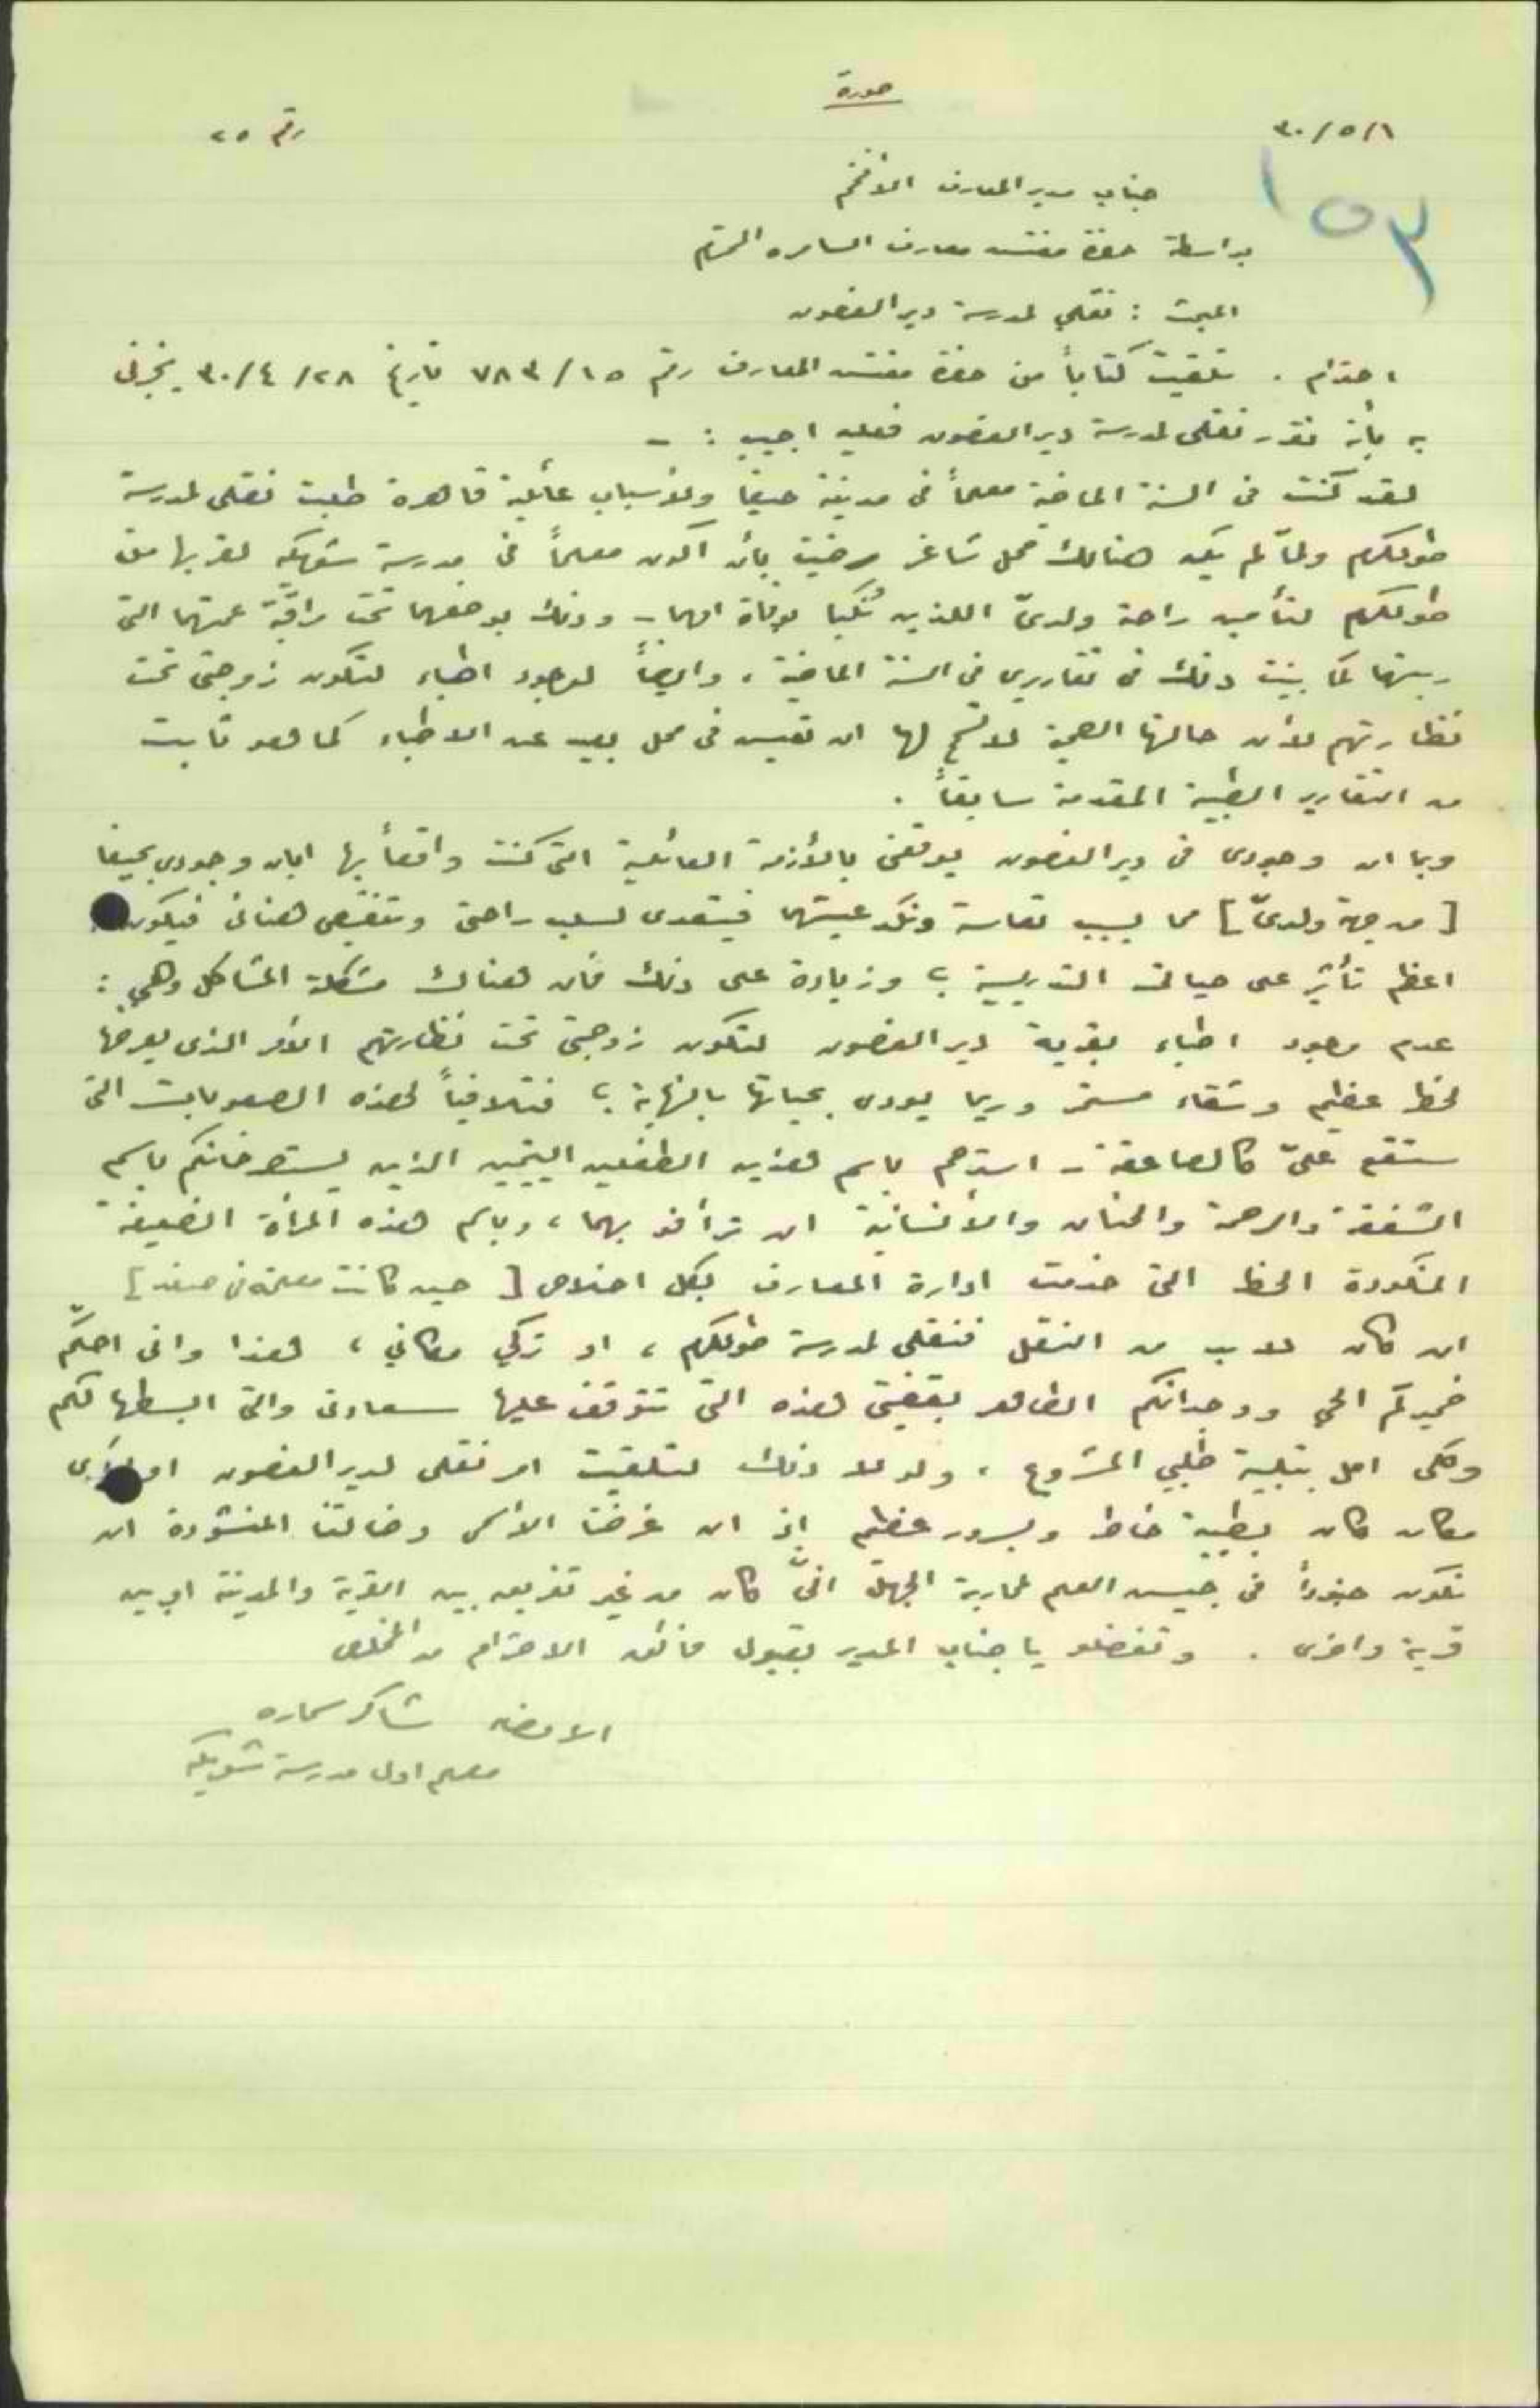 صورة
٣٠/٥/١
رقم ٢٥
١٥٣
جناب مدير المعارف الأفخم
بواسطة حضرة مفتش معارف السامره المحترم
المبحث : نقلي لمدرسة دير الغصون
احترام . تلقيت كتاباً من حضرة مفتش المعارف رقم ٧٨٣/١٥ تاريخ ٣٠/٤/٢٨ يخبرني
به بأنه تقرر نقلي لمدرسة دير الغصون فعليه اجيب : -
لقد كنت في السنة الماضية معلماً في مدينة حيفا ولأسباب عائلية قاهرة طلبت نقلي لمدرسة
طولكرم ولمّا لم يكن هنالك محل شاغر رضيت بأن اكون معلماً في مدرسة شويكه لقربها من
طولكرم لتأمين راحة ولديّ اللذين نُكبا بوفاة امهما - وذلك بوضعهما تحت مراقبة عمتهما التي
ربتهما كما بينت ذلك في تقاريري في السنة الماضية ، وايضاً لوجود اطباء لتكون زوجتي تحت
نظارتهم لأن حالتها الصحية لا تسمح لها ان تعيش في محل بعيد عن الاطباء كما هو ثابت
من التقارير الطبية المقدمة سابقاً .
وبما ان وجودي في دير الغصون يوقعني بالأزمة العائلية التي كنت واقعاً بها ابان وجودي بحيفا
[ من جهة ولديّ ] مما يسبب تعاسة ونكد عيشتهما فيتعدى لسلب راحتي وتنغيص هنائي فيكون
اعظم تأثير على حياتي التدريسية ؛ وزيادة على ذلك فان هناك مشكلة المشاكل وهي :
عدم وجود اطباء بقرية دير الغصون لتكون زوجتي تحت نظارتهم الأمر الذي يعرضها
لخطر عظيم وشقاء مستمر وربما يودي بحياتها بالنهاية ؛ فتلافياً لهذه الصعوبات التي
ستقع عليّ كالصاعقة - استرحم باسم هذين الطفلين اليتيمين الذين يستصرخانكم باسم
الشفقة والرحمة والحنان والأنسانية ان ترأفو بهما ، وباسم هذه المرأة الضعيفة
المنكودة الحظ التي خدمت ادارة المعارف بكل اخلاص [ حين كانت معلمة في صفد ]
ان كان لا بد من النقل فنقلي لمدرسة طولكرم ، او تركي مكاني ، هذا واني احكّم
ضميركم الحي ووجدانكم الطاهر بقضيتي هذه التي تتوقف عليها سعادتي والتي ابسطها لكم
وكلي امل بتلبية طلبي المشروع ، ولو لا ذلك لتلقيت امر نقلي لدير الغصون او لأي
مكان كان بطيبة خاطر وبسرور عظيم إذ ان غرضنا الأسمى وضالتنا المنشودة ان
نكون جنوداً في جيش العلم لمحاربة الجهل انّى كان من غير تفريق بين القرية والمدينة او بين
قرية واخرى . وتفضلو يا جناب المدير بقبول فائق الاحترام من المخلص
الامضاء شاكر سماره
معلم اول مدرسة شويكه